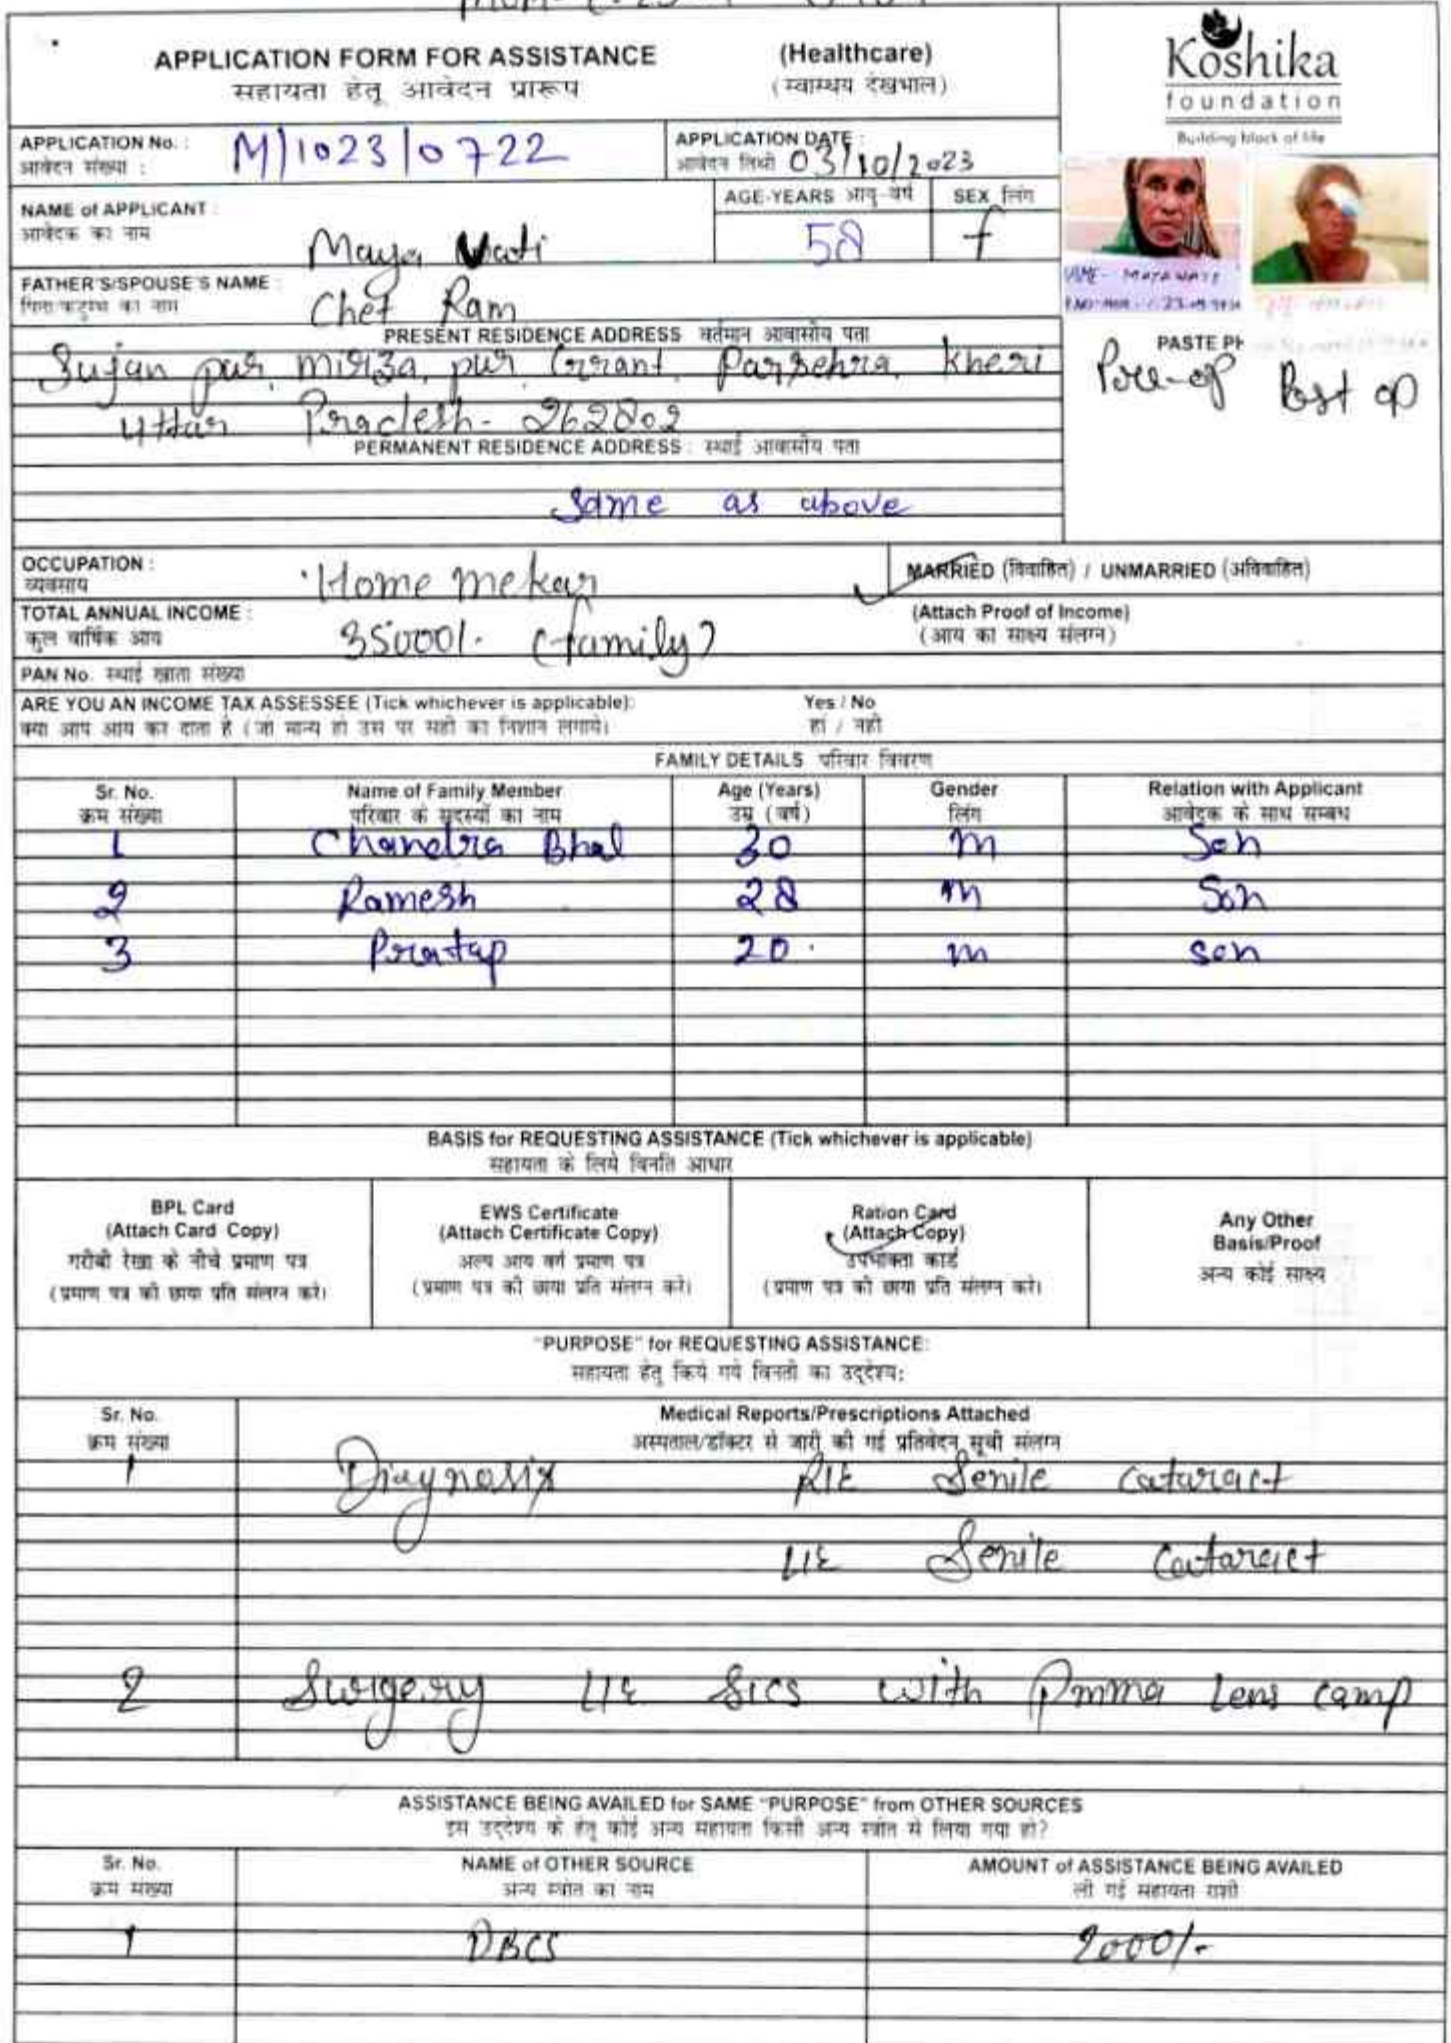 APPLICATION FORM FOR ASSISTANCE (Healthcare)
सहायता हेतू आवेदन प्रारूप (स्वास्थय देखभाल)
Koshika
foundation
Building block of life
APPLICATION No. : M/1023/0722
आवेदन संख्या :
APPLICATION DATE :
आवेदन तिथी 03/10/2023
NAME of APPLICANT :
आवेदक का नाम
Maya Wati
AGE-YEARS आयु-वर्ष
58
SEX लिंग
f
FATHER'S/SPOUSE'S NAME :
Chet Ram
PRESENT RESIDENCE ADDRESS वर्तमान आवासीय पता
Sujan pur, mirza, pur Grant, Parsehra, kheri
Uttar Pradesh- 262802
PERMANENT RESIDENCE ADDRESS : स्थाई आवासीय पता
Same as above
NAME- MAYAWATI
PASTE PH
Pre-op Post op
OCCUPATION :
व्यवसाय
Home mekar
MARRIED (विवाहित) / UNMARRIED (अविवाहित)
TOTAL ANNUAL INCOME :
कुल वार्षिक आय
35000/. (family)
(Attach Proof of Income)
(आय का साक्ष्य संलग्न)
PAN No. स्थाई खाता संख्या
ARE YOU AN INCOME TAX ASSESSEE (Tick whichever is applicable): Yes / No
क्या आप आय कर दाता है (जो मान्य हो उस पर सही का निशान लगाये। हां / नहीं
FAMILY DETAILS परिवार विवरण
Sr. No. Name of Family Member Age (Years) Gender Relation with Applicant
क्रम संख्या परिवार के सदस्यों का नाम उम्र (वर्ष) लिंग आवेदक के साथ सम्बध
1 Chandra Bhal 30 m Son
2 Ramesh 28 m Son
3 Pratap 20 m son
BASIS for REQUESTING ASSISTANCE (Tick whichever is applicable)
सहायता के लिये विनति आधार
BPL Card
(Attach Card Copy)
गरीबी रेखा के नीचे प्रमाण पत्र
(प्रमाण पत्र की छाया प्रति संलग्न करे।
EWS Certificate
(Attach Certificate Copy)
अल्प आय वर्ग प्रमाण पत्र
(प्रमाण पत्र की छाया प्रति संलग्न करे।
Ration Card
(Attach Copy)
उपभोक्ता कार्ड
(प्रमाण पत्र की छाया प्रति संलग्न करे।
Any Other
Basis/Proof
अन्य कोई साक्ष्य
"PURPOSE" for REQUESTING ASSISTANCE:
सहायता हेतु किये गये विनती का उद्देश्य:
Sr. No. Medical Reports/Prescriptions Attached
क्रम संख्या अस्पताल/डॉक्टर से जारी की गई प्रतिवेदन सूची संलग्न
1 Diagnosis R/E Senile Cataract
L/E Senile Cataract
2 Surgery L/E Sics with Pmma Lens camp
ASSISTANCE BEING AVAILED for SAME "PURPOSE" from OTHER SOURCES
इस उद्देश्य के हेतु कोई अन्य सहायता किसी अन्य स्त्रोत से लिया गया हो?
Sr. No. NAME of OTHER SOURCE AMOUNT of ASSISTANCE BEING AVAILED
क्रम संख्या अन्य स्त्रोत का नाम ली गई सहायता राशी
1 DBCS 2000/-